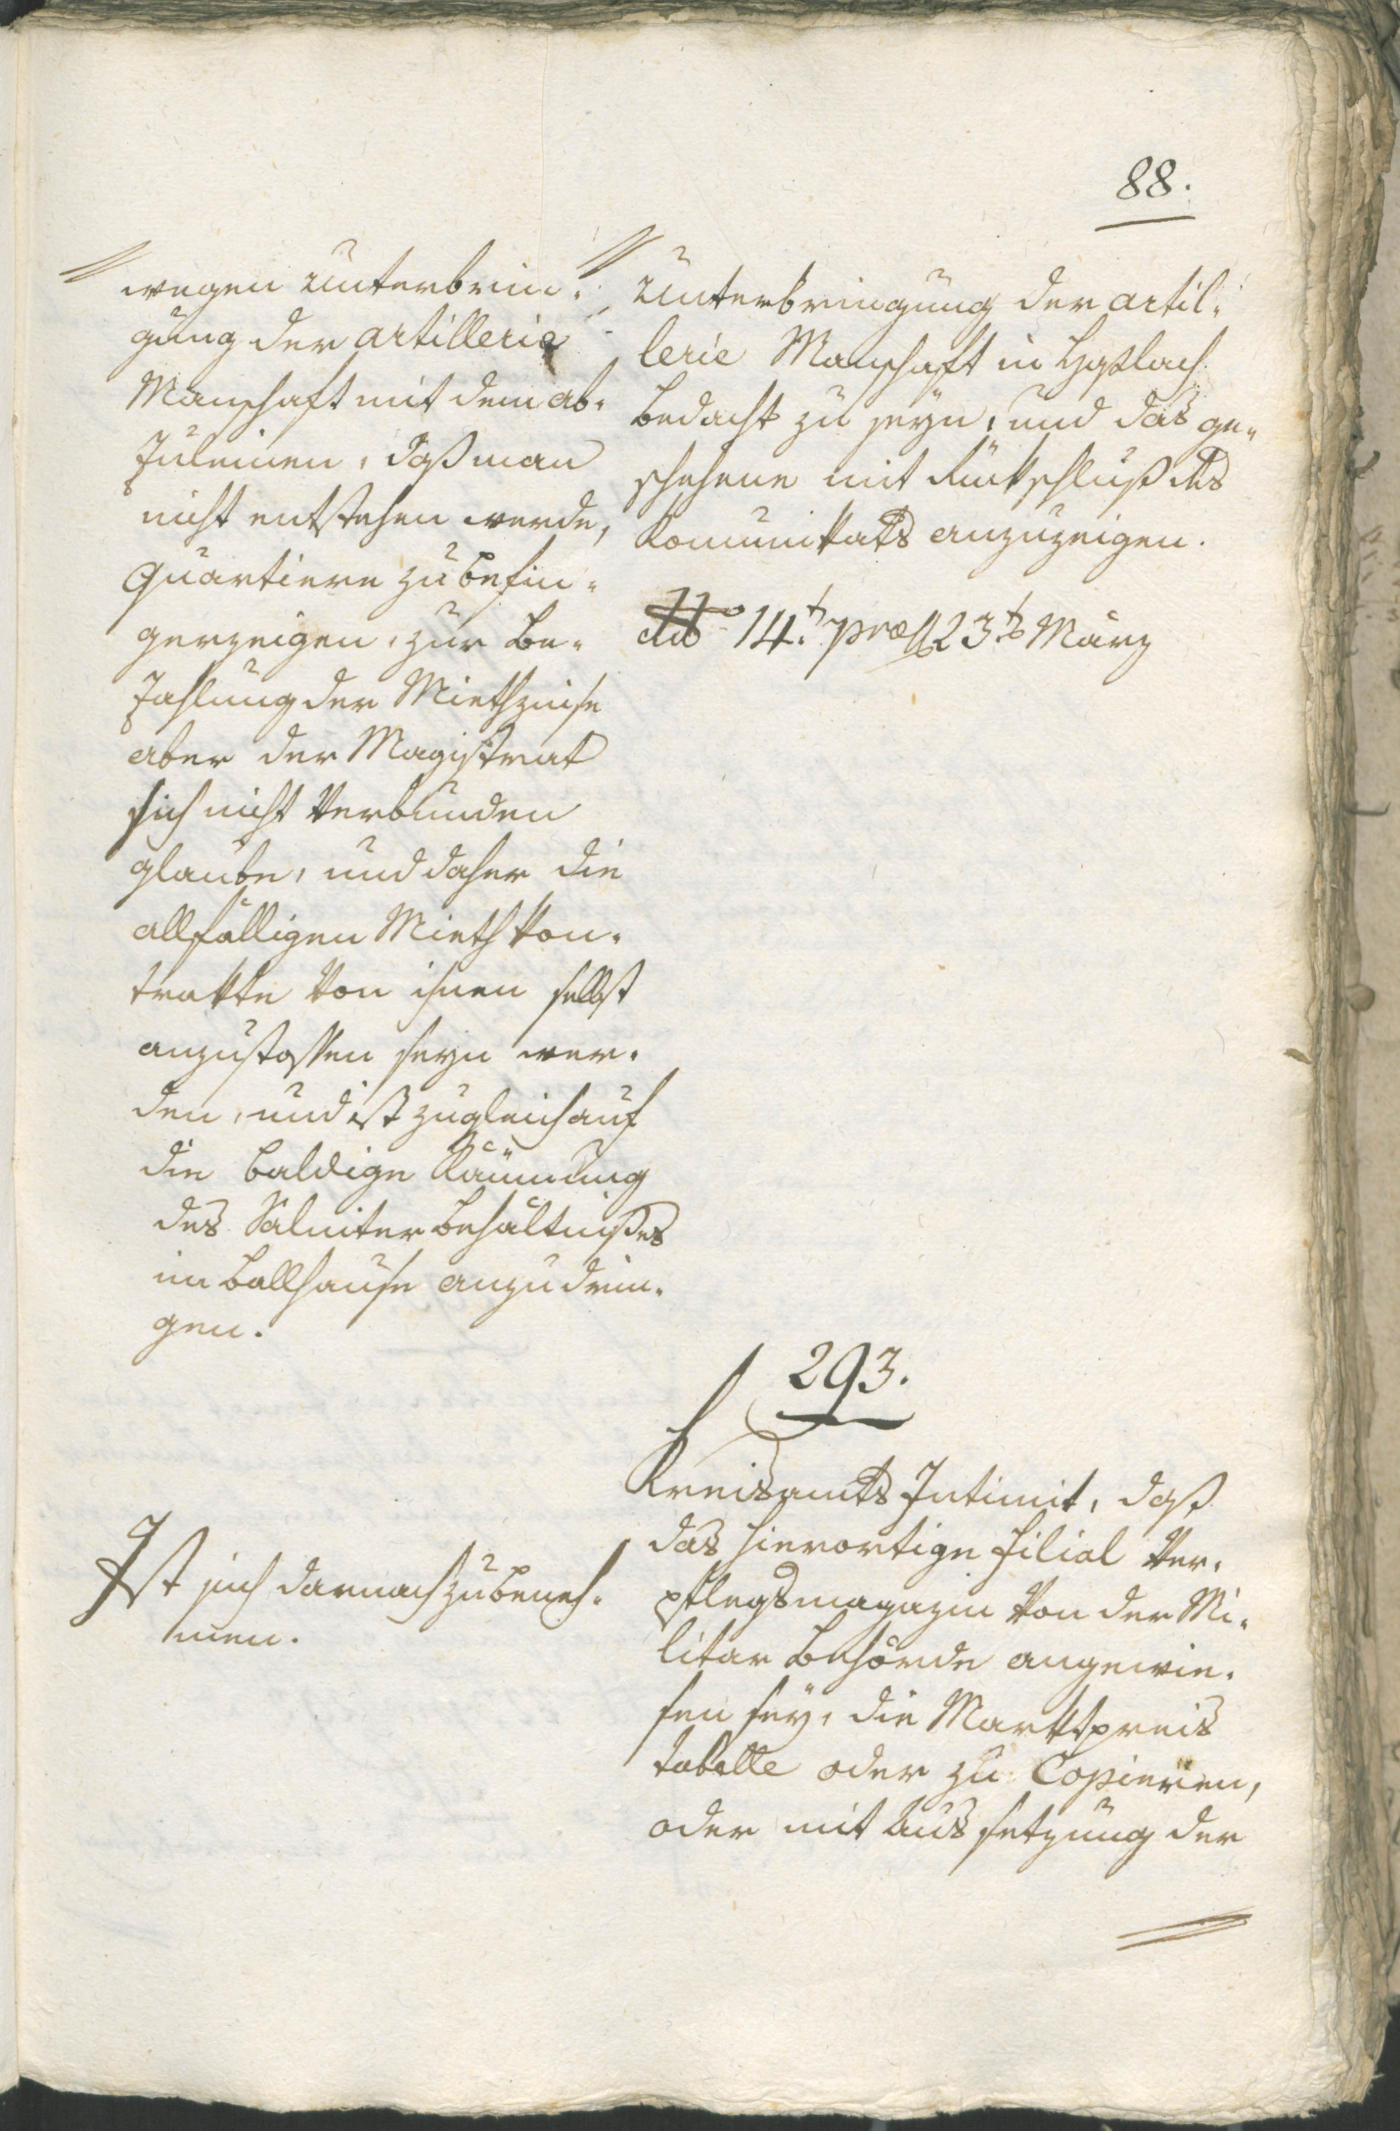 88.
wegen Unterbrin-
gung der Artillerie
Manschaft mit dem ab-
zuleinen, daß man
nicht entstehen werde,
Quartiere zu
zur Be-
zahlung der Miethzinse
aber der Magistrat
sich nicht verbunden
glaube, und daher die
allfälligen Miethkon-
trakte von ihnen selbst
anzustossen seyn wer-
den, und ist zugleich auf
die baldige Räumung
des Saliterbehältnißes
im Ballhause anzudrin-
gen.
Unterbringung der Artil-
lerie Manschaft in
bedacht zu seyn, und das ge-
schehene mit Rückschluß des
Komunikats anzuzeigen.
ddo 14t. präs 23t. März
293.
Kreisamts Intimat, daß
das hierortige Filial Ver-
pflegsmagazin von der Mi-
litar Behörde angewie-
sen sey, die Marktpreis
tabelle oder zu Copieren,
oder mit Aussetzung der
Ist sich darnach zu beneh-
men.